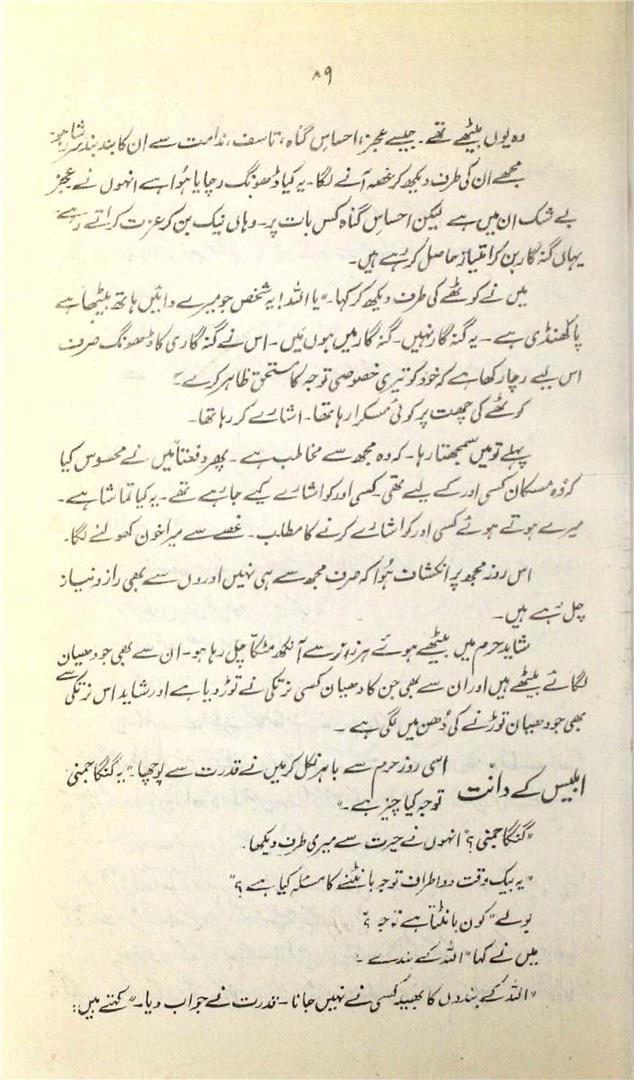 ۸۹
وہ یوں بیٹھے تھے۔ جیسے عجز، احساسِ گناہ، تاسف، ندامت سے ان کا بند بند سرشار ہو۔
مجھے ان کی طرف دیکھ کر غصہ آنے لگا۔ یہ کیا ڈھونگ رچایا ہوا ہے انہوں نے عجز
بے شک ان میں ہے لیکن احساسِ گناہ کس بات پر۔ وہاں نیک بن کر عزت کراتے رہے
یہاں گنہ گار بن کر امتیاز حاصل کر رہے ہیں۔
میں نے کوٹھے کی طرف دیکھ کر کہا۔ "یا اللہ! یہ شخص جو میرے دائیں ہاتھ بیٹھا ہے
پاکھنڈی ہے۔ یہ گنہ گار نہیں۔ گنہ گار میں ہوں میں۔ اس نے گنہ گاری کا ڈھونگ صرف
اس لیے رچا رکھا ہے کہ خود کو تیری خصوصی توجہ کا مستحق ظاہر کرے۔"
کوٹھے کی چھت پر کوئی مسکرا رہا تھا۔ اشارے کر رہا تھا۔
پہلے تو میں سمجھتا رہا۔ کہ وہ مجھ سے مخاطب ہے۔ پھر دفعتاً میں نے محسوس کیا
کہ وہ مسکان کسی اور کے لیے تھی۔ کسی اور کو اشارے کیے جا رہے تھے۔ یہ کیا تماشا ہے۔
میرے ہوتے ہوئے کسی اور کو اشارے کرنے کا مطلب۔ غصے سے میرا خون کھولنے لگا۔
اس روز مجھ پر انکشاف ہوا کہ صرف مجھ سے ہی نہیں اوروں سے بھی راز و نیاز
چل رہے ہیں۔
شاید حرم میں بیٹھے ہوئے ہر زائر سے آنکھ مٹکا چل رہا ہو۔ ان سے بھی جو دھیان
لگائے بیٹھے ہیں اور ان سے بھی جن کا دھیان کسی نرتکی نے توڑ دیا ہے اور شاید اس نرتکی سے
بھی جو دھیان توڑنے کی دُھن میں لگی ہے۔
ابلیس کے دانت اسی روز حرم سے باہر نکل کر میں نے قدرت سے پوچھا۔ "یہ گنگا جمنی
توجہ کیا چیز ہے۔"
"گنگا جمنی؟" انہوں نے حیرت سے میری طرف دیکھا۔
"یہ بیک وقت دو اطراف توجہ بانٹنے کا مسئلہ کیا ہے؟"
بولے "کون بانٹتا ہے توجہ؟"
میں نے کہا "اللہ کے بندے۔"
"اللہ کے بندوں کا بھید کسی نے نہیں جانا۔ قدرت نے جواب دیا۔ "کہتے ہیں: